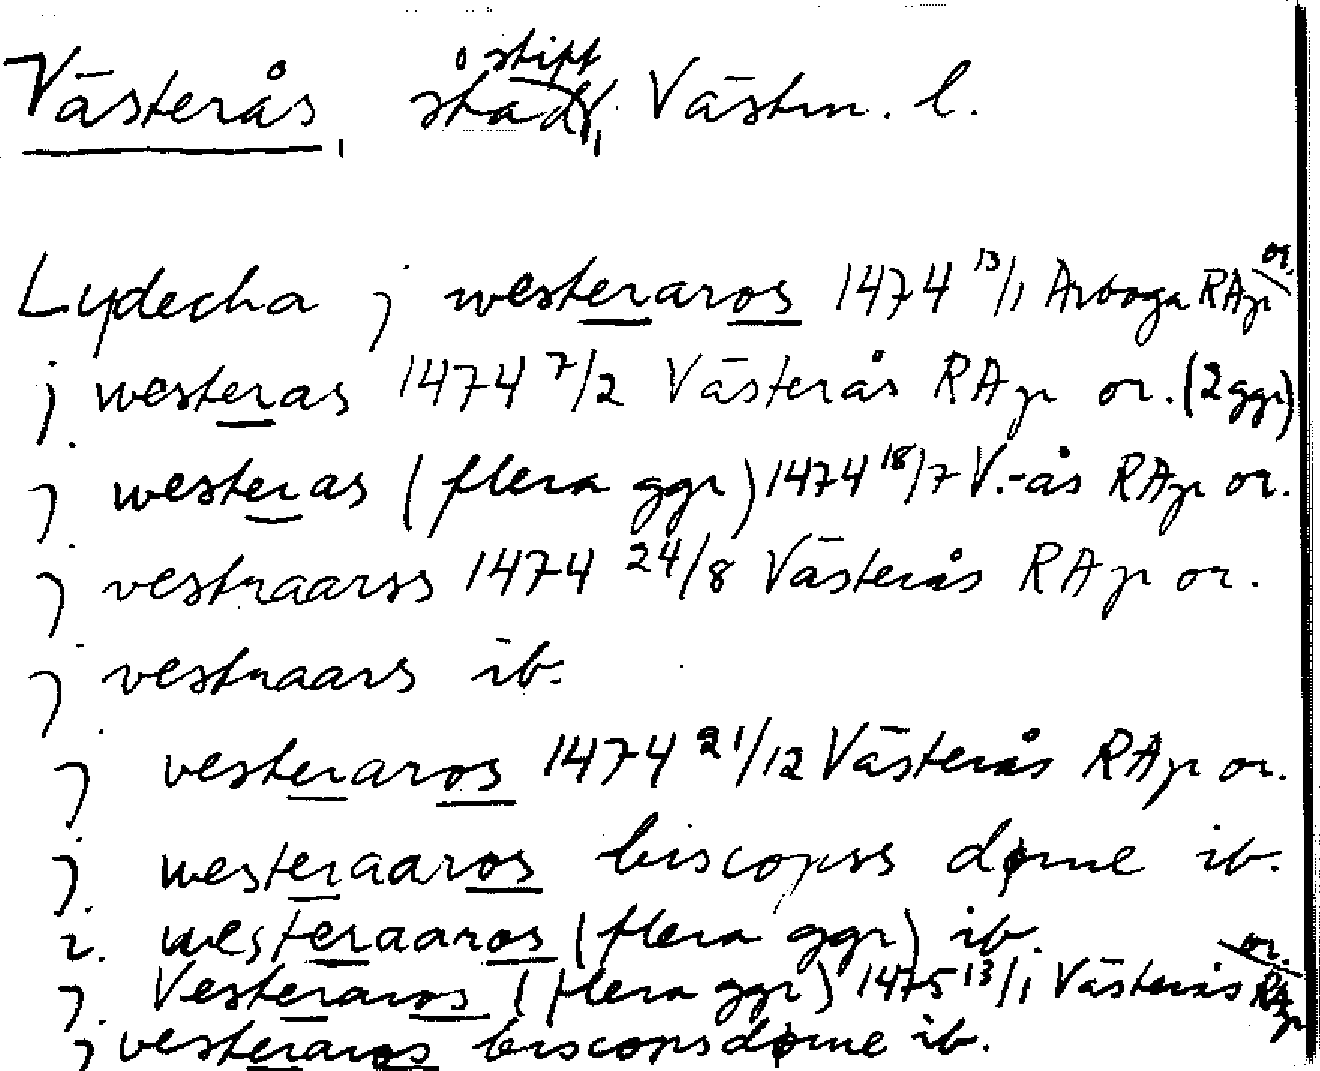 Västerås, stad o stift, Västm. l.
Lydecha j westeraros 1474 13/1 Arboga RAp or.
j westeras 1474 7/2 Västerås RAp or. (2 ggr)
j westeras (flera ggr) 1474 18/7 V.-ås RAp or.
j vestraarss 1474 24/8 Västerås RAp or.
j vestraars ib.
j vesteraros 1474 21/12 Västerås RAp or.
j westeraaros biscopss døme ib.
i westeraaros (flera ggr) ib.
j Vesteraros (flera ggr) 1475 13/1 Västerås RAp or.
j vesteraros biscopsdøme ib.